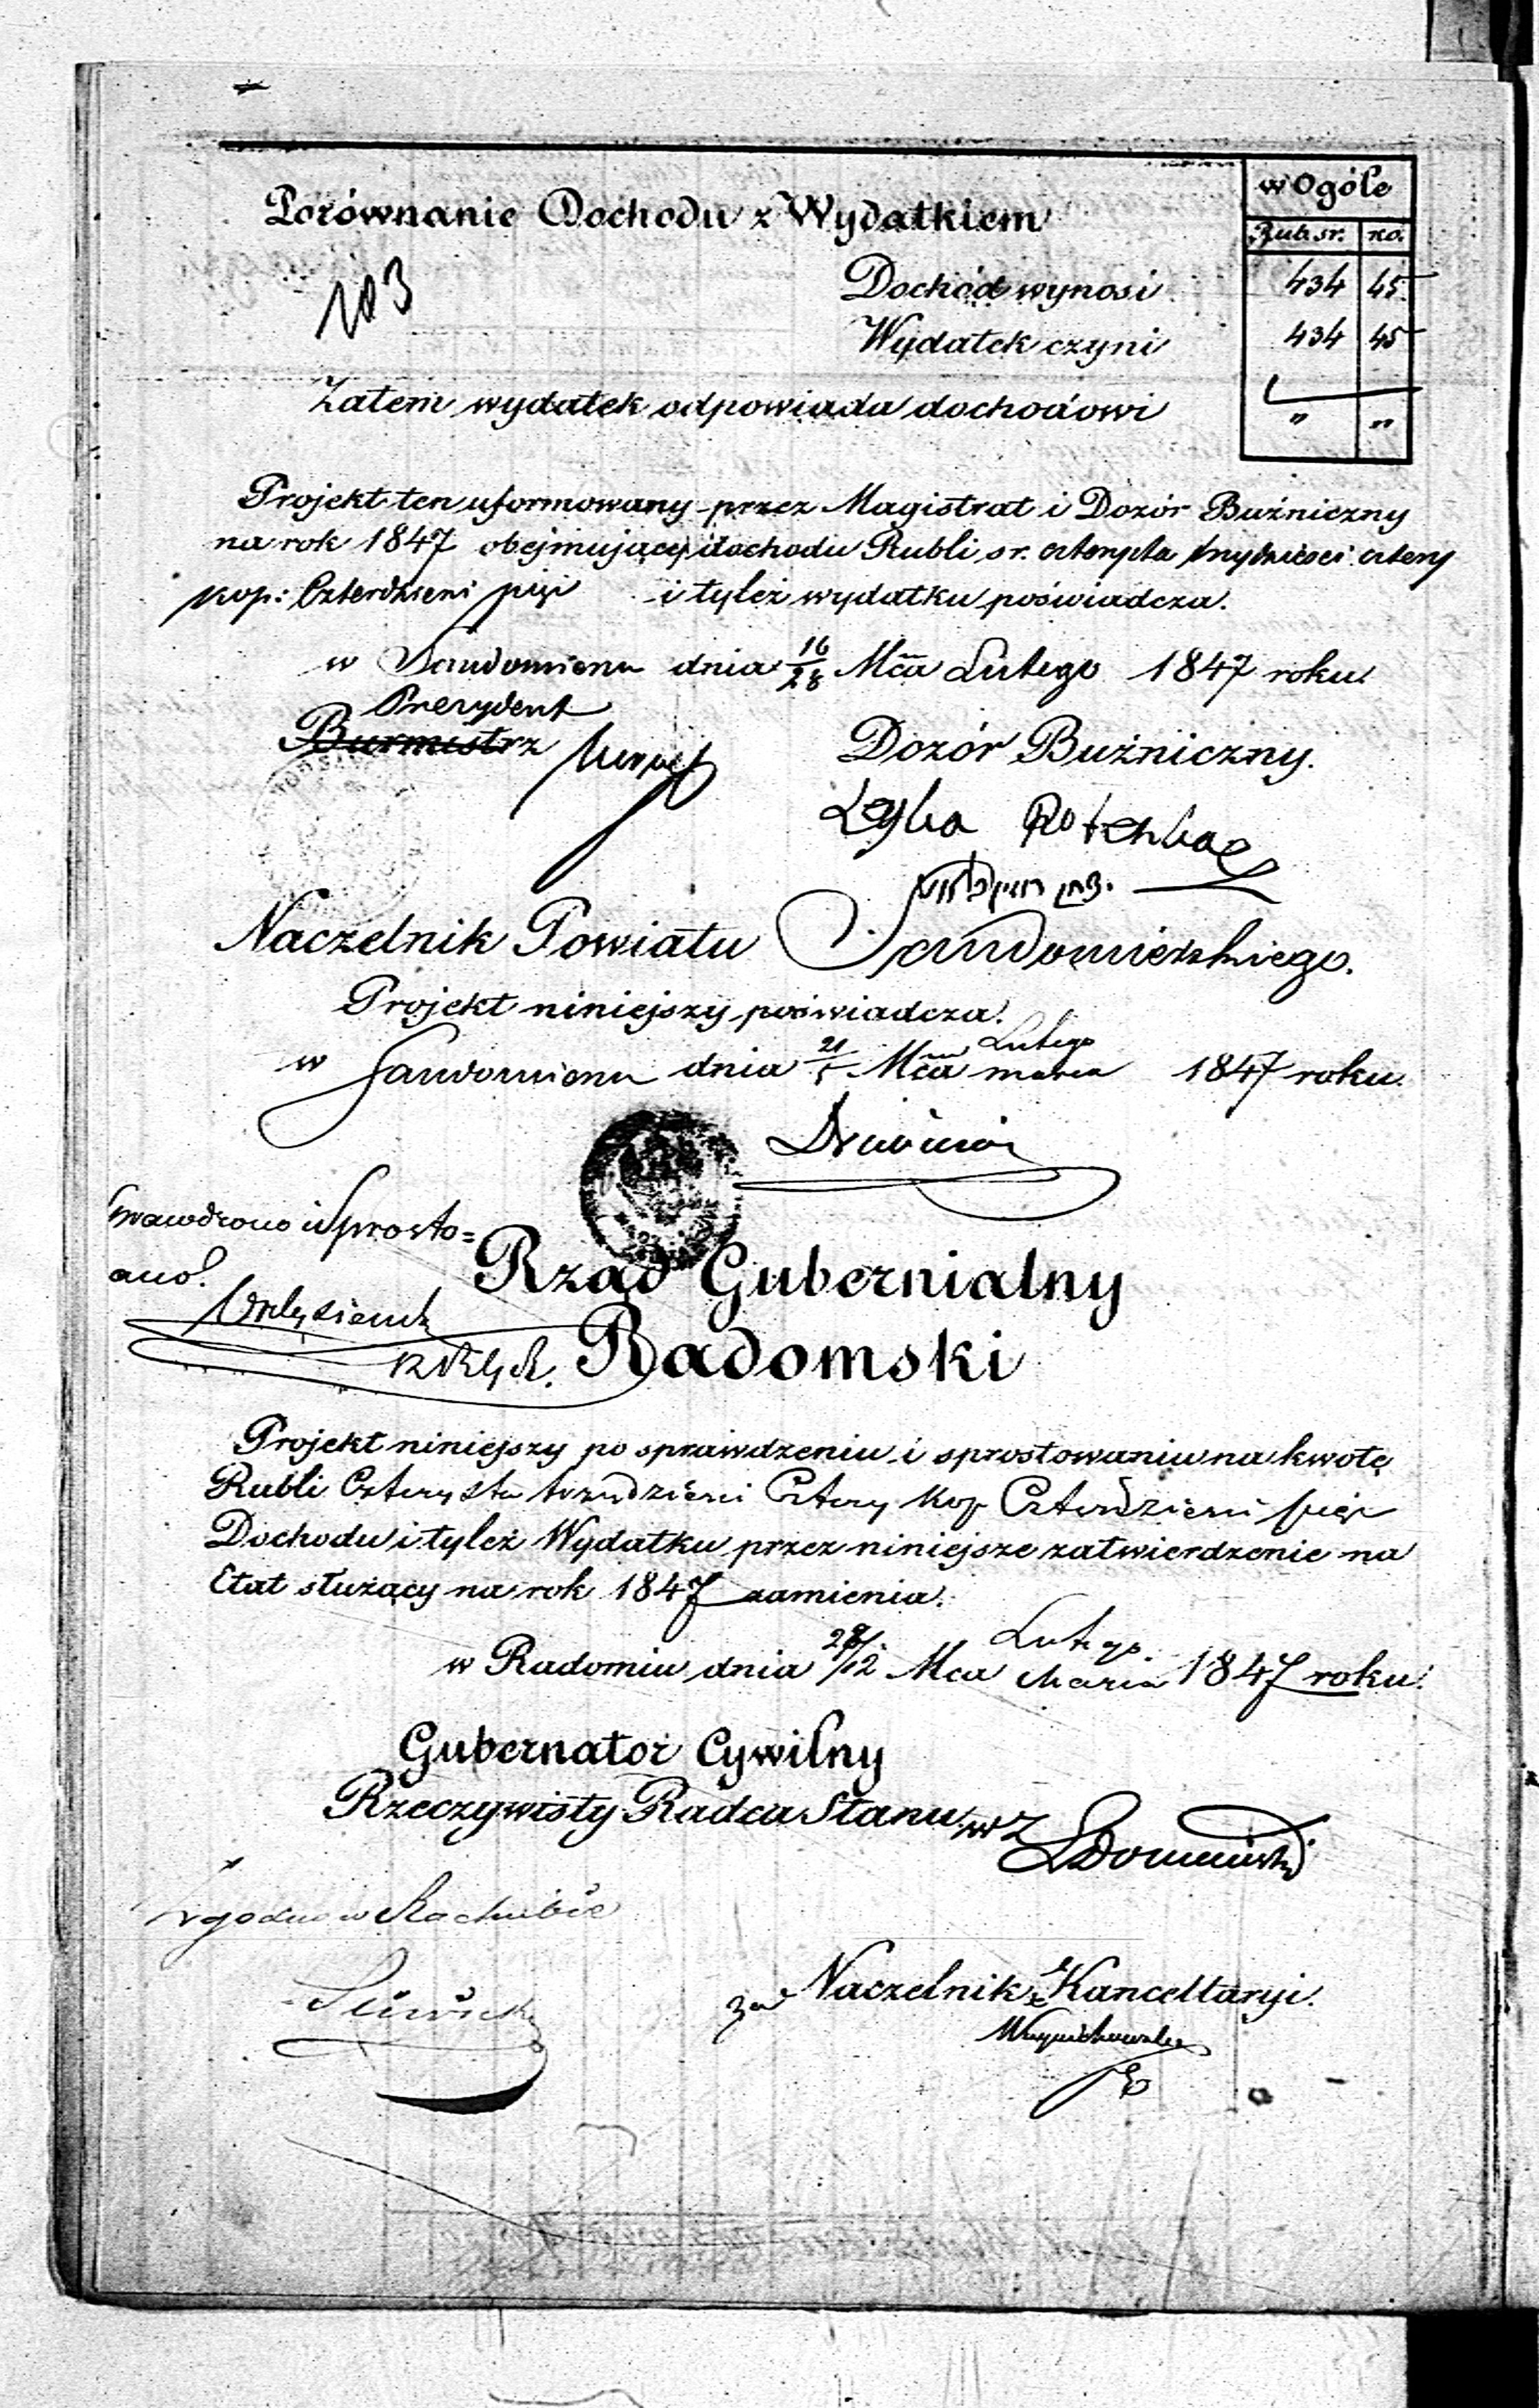 Porównanie Dochodu z Wydatkiem
w Ogóle
Rub sr. ko.
103
Dochód wynosi 434 45
Wydatek czyni 434 45
Zatem wydatek odpowiada dochodowi " "
Projekt ten uformowany przez Magistrat i Dozór Buźniczny
na rok 1847 obejmujący dochodu Rubli sr. czterysta trzydzieści cztery
kop: Czterdzieści pięć i tyleż wydatku poświadcza.
w Sandomierzu dnia 16/28 Mca Lutego 1847 roku.
Prezydent
Burmistrz
Dozór Buźniczny.
Leyba Rotenbag
Naczelnik Powiatu Sandomierskiego.
Projekt niniejszy poświadcza.
w Sandomierzu dnia 21/5 Mca Lutego marca 1847 roku.
Sprawdzono i Sprosto=
ano.
Rząd Gubernialny
Radomski
Projekt niniejszy po sprawdzeniu i sprostowaniu na kwotę
Rubli Czterysta trzydzieści Cztery Kop Czterdzieści pięć
Dochodu i tyleż Wydatku przez niniejsze zatwierdzenie na
Etat służący na rok 1847 zamienia.
w Radomiu dnia 28/12 Mca Lutego Marca 1847 roku.
Gubernator Cywilny
Rzeczywisty Radca Stanu wz
Zgodno w Rachubie
za Naczelnik Kancellaryi.